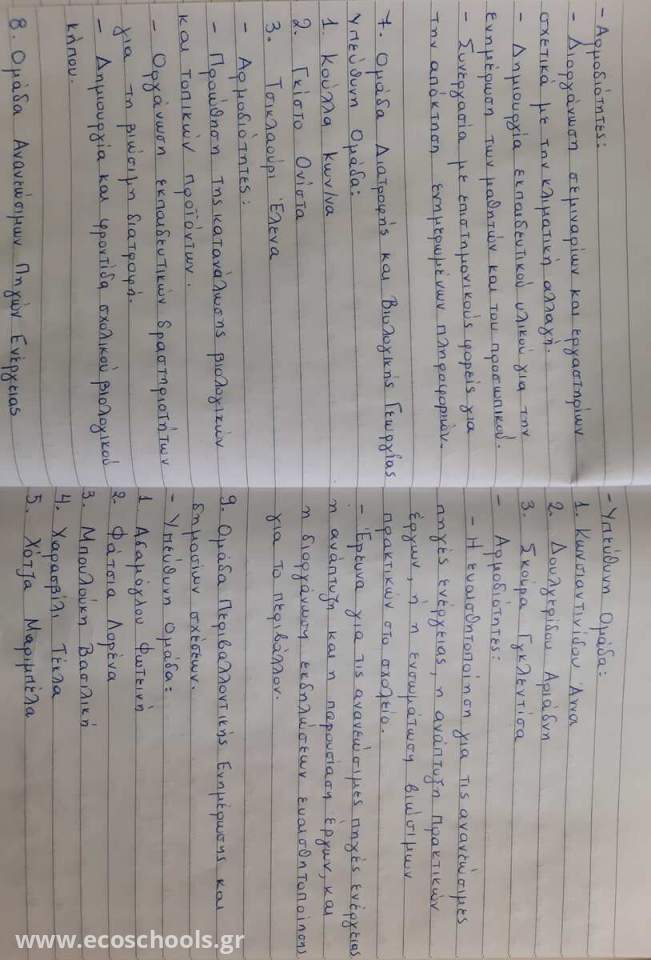 - Αρμοδιότητες:
- Διοργάνωση σεμιναρίων και εργαστηρίων
σχετικά με την κλιματική αλλαγή.
- Δημιουργία εκπαιδευτικού υλικού για την
ενημέρωση των μαθητών και του προσωπικού.
- Συνεργασία με επιστημονικούς φορείς για
την απόκτηση ενημερωμένων πληροφοριών.
7. Ομάδα Διατροφής και Βιολογικής Γεωργίας
Υπεύθυνη Ομάδα:
1. Κούλλα Κων/να
2. Γκίστο Ονίστα
3. Τσικλαούρι Έλενα
- Αρμοδιότητες:
- Προώθηση της κατανάλωσης βιολογικών
και τοπικών προϊόντων.
- Οργάνωση εκπαιδευτικών δραστηριοτήτων
για τη βιώσιμη διατροφή.
- Δημιουργία και φροντίδα σχολικού βιολογικού
κήπου.
8. Ομάδα Ανανεώσιμων Πηγών Ενέργειας
- Υπεύθυνη Ομάδα:
1. Κωνσταντινίδου Άννα
2. Δουλγερίδου Αριάδνη
3. Σκούρα Γκλεντίσα
- Αρμοδιότητες:
- Η ευαισθητοποίηση για τις ανανεώσιμες
πηγές ενέργειας, η ανάπτυξη πρακτικών
έργων, ή η ενσωμάτωση βιώσιμων
πρακτικών στο σχολείο.
- Έρευνα για τις ανανεώσιμες πηγές ενέργειας
η ανάπτυξη και η παρουσίαση έργων, και
η διοργάνωση εκδηλώσεων ευαισθητοποίησης
για το περιβάλλον.
9. Ομάδα Περιβαλλοντικής Ενημέρωσης και
δημοσίων σχέσεων.
- Υπεύθυνη Ομάδα:
1. Αδαμόγλου Φωτεινή
2. Φάτσια Λορένα
3. Μπουλούκη Βασιλική
4. Χαρασβίλι Τέκλα
5. Χότζα Μαριμπέλα
www.ecoschools.gr